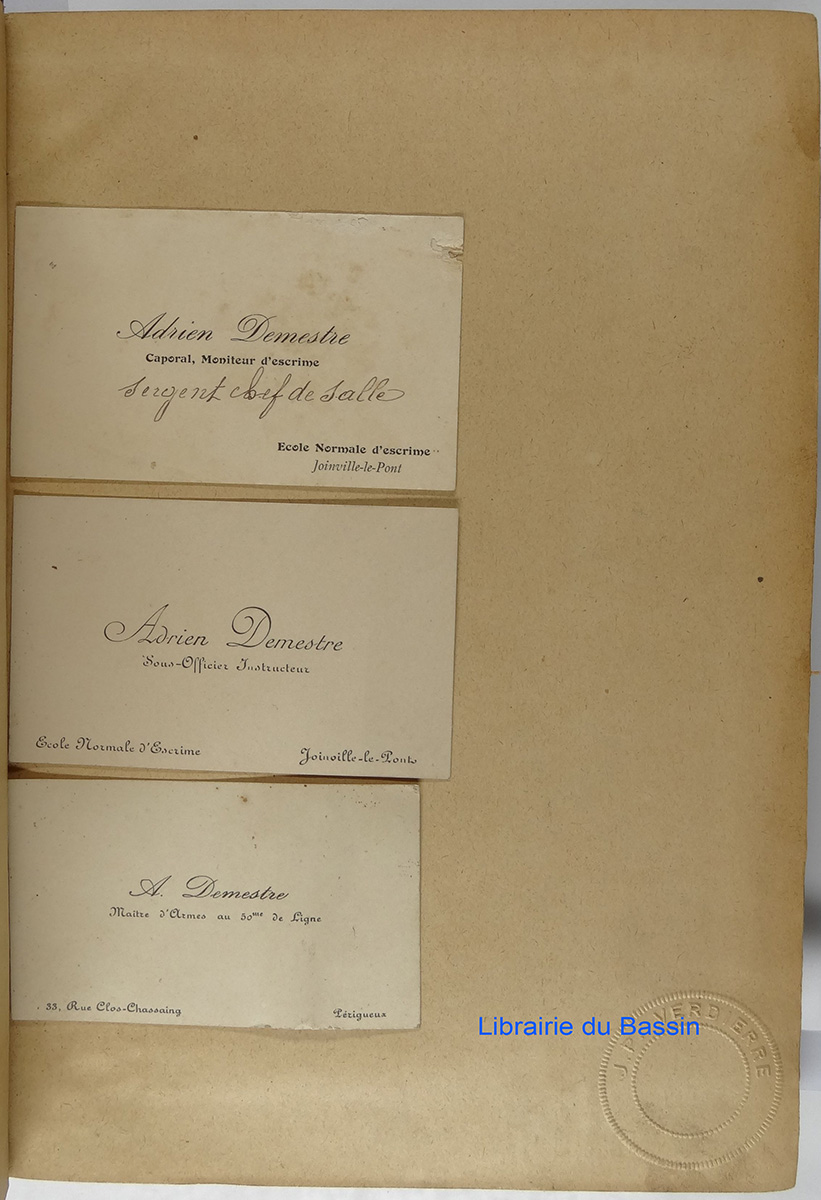 Adrien Demestre
Caporal, Moniteur d'escrime
Sergent chef de Salle
Ecole Normale d'escrime
Joinville-le-Pont
Adrien Demestre
Sous-Officier Instructeur
Ecole Normale d'Escrime
Joinville-le-Pont
A. Demestre
Maître d'Armes au 50me de Ligne
33, Rue Clos-Chassaing
Périgueux
Librairie du Bassin
VERDIERRE